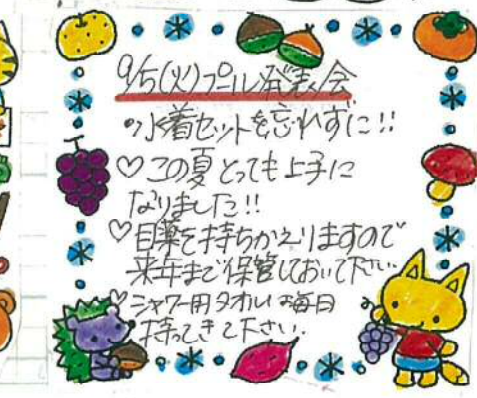 9/5(火)プール発表会
・水着セットを忘れずに!!
♡この夏とっても上手に
なりました!!
♡目薬を持ちかえりますので
来年まで保管しておいて下さい
♡シャワー用タオルは毎日
持ってきて下さい.